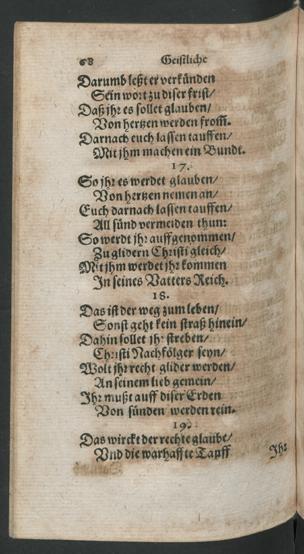 68 Geistliche
Darumb leßt er verkünden
Sein wort zu diser frist/
Daß jhr es sollet glauben/
Von hertzen werden from̃.
Darnach euch lassen tauffen/
Mit jhm machen ein Bundt.
17.
So jhr es werdet glauben/
Von hertzen nemen an/
Euch darnach lassen tauffen/
All sünd vermeiden thun:
So werdt jhr auffgenommen/
Zu glidern Christi gleich/
Mit jhm werdet jhr kommen
In seines Vatters Reich.
18.
Das ist der weg zum leben/
Sonst geht kein straß hinein/
Dahin sollet jhr streben/
Christi Nachfölger seyn/
Wolt jhr recht glider werden/
An seinem lieb gemein/
Ihr mußt auff diser Erden
Von sünden werden rein.
19.
Das wirckt der rechte glaube/
Vnd die warhaffte Tauff
Ihr